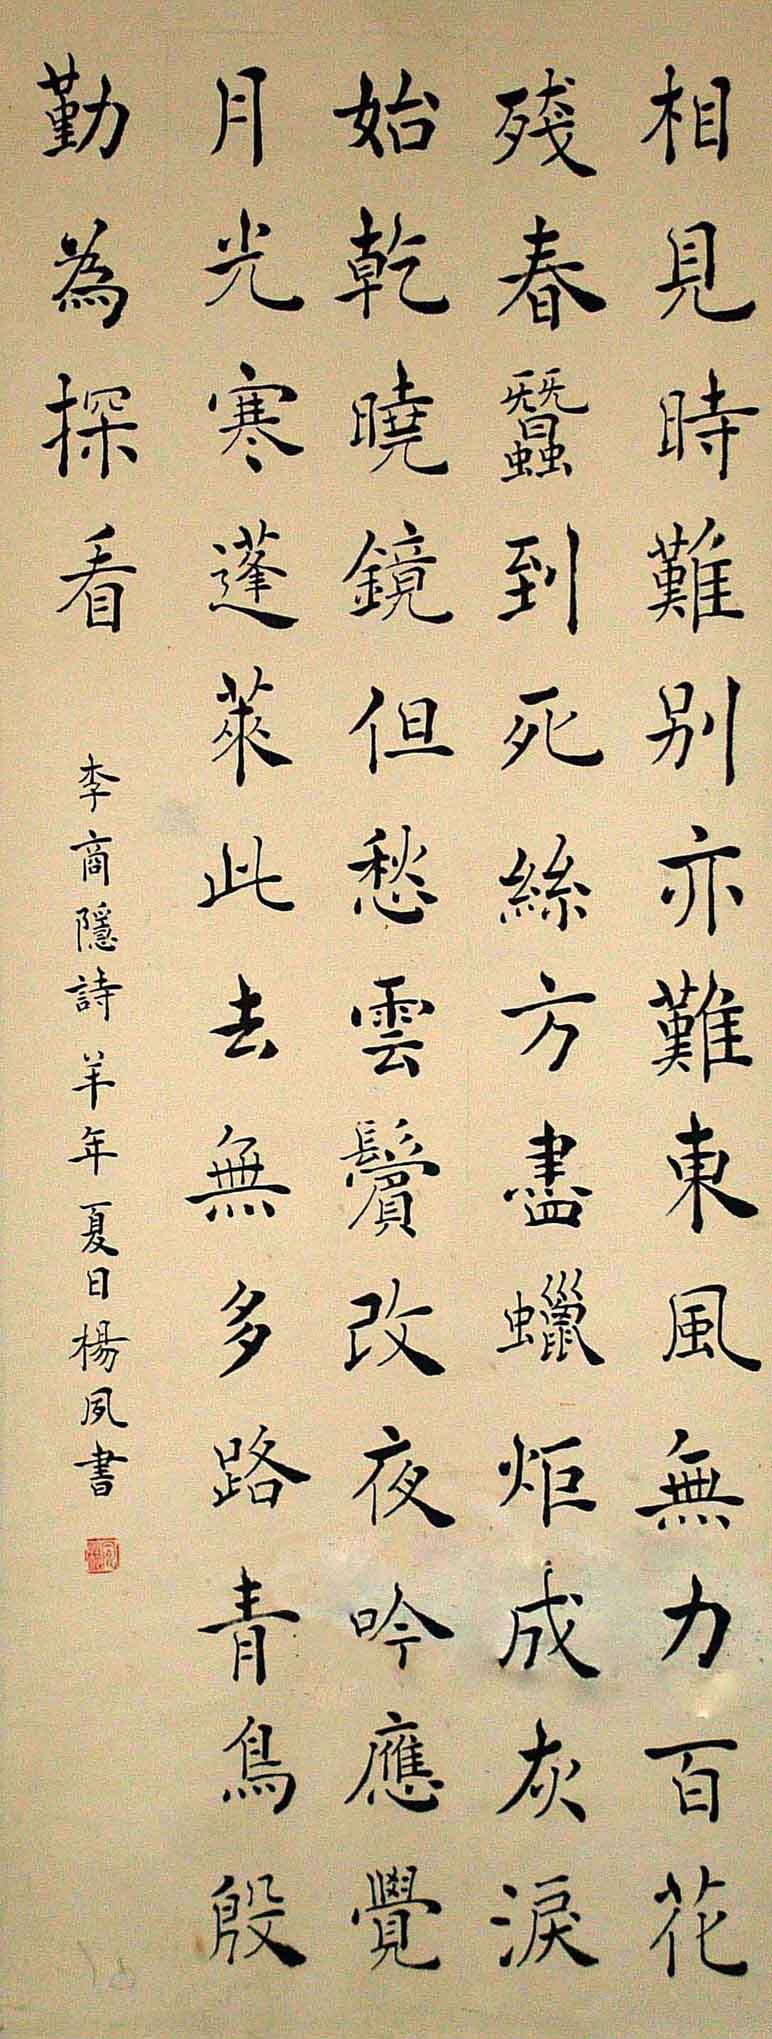 相見時難別亦難東風無力百花
殘春蠶到死絲方盡蠟炬成灰淚
始乾曉鏡但愁雲鬢改夜吟應覺
月光寒蓬萊此去無多路青鳥殷
勤為探看
李商隱詩羊年夏日楊夙書